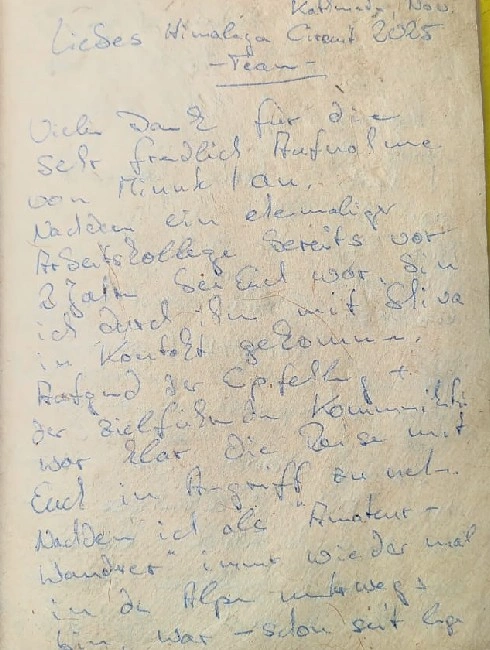 Kathmandu, Nov.
Liebes Himalaya Circuit 2025
- Team -
Vielen Dank für die
sehr freundlich Aufnahme
von Minute 1 an.
Nachdem ein ehemaliger
Arbeitskollege bereits vor
2 Jahren bei Euch war, bin
ich durch ihn mit Shiva
in Kontakt gekommen.
Aufgrund der Empfehlung +
der zielführenden Kommunikation
war klar die Reise mit
Euch in Angriff zu nehmen.
Nachdem ich als "Amateur-
Wandrer" immer wieder mal
in den Alpen unterwegs
bin, war - schon seit